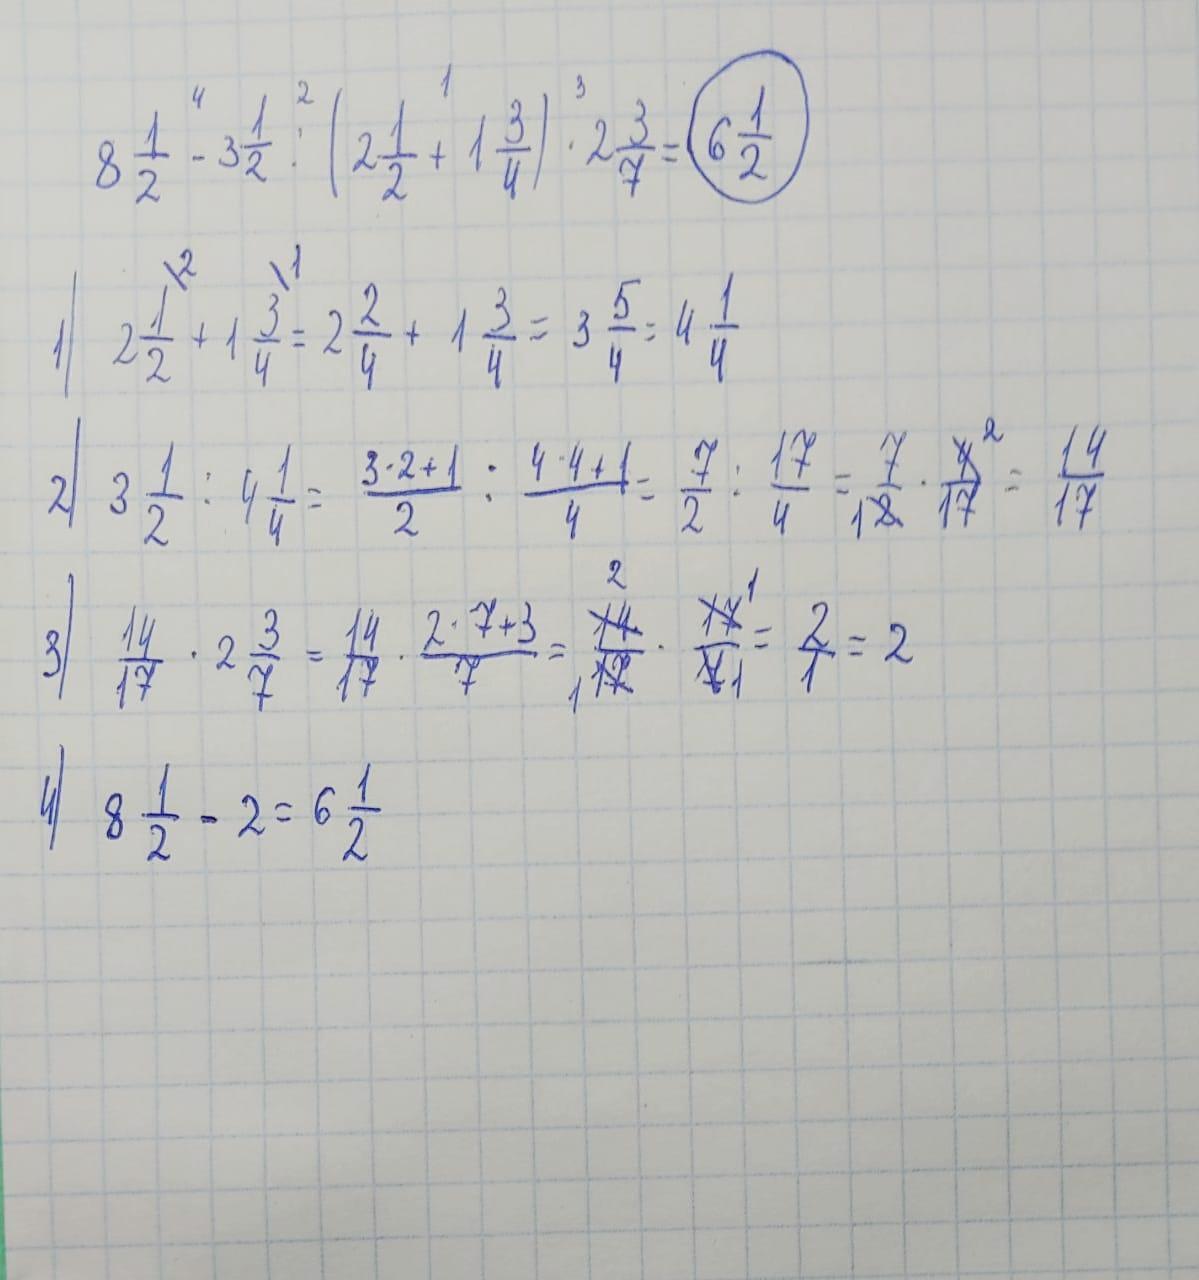 8 1/2 - 3 1/2 : (2 1/2 + 1 3/4) · 2 3/7 = 6 1/2
1) 2 1/2 \2 + 1 3/4 \1 = 2 2/4 + 1 3/4 = 3 5/4 = 4 1/4
2) 3 1/2 : 4 1/4 = (3·2+1)/2 : (4·4+1)/4 = 7/2 : 17/4 = 7/2 1 · 4 2/17 = 14/17
3) 14/17 · 2 3/7 = 14/17 · (2·7+3)/7 = 14 2/17 1 · 17 1/7 1 = 2/1 = 2
4) 8 1/2 - 2 = 6 1/2